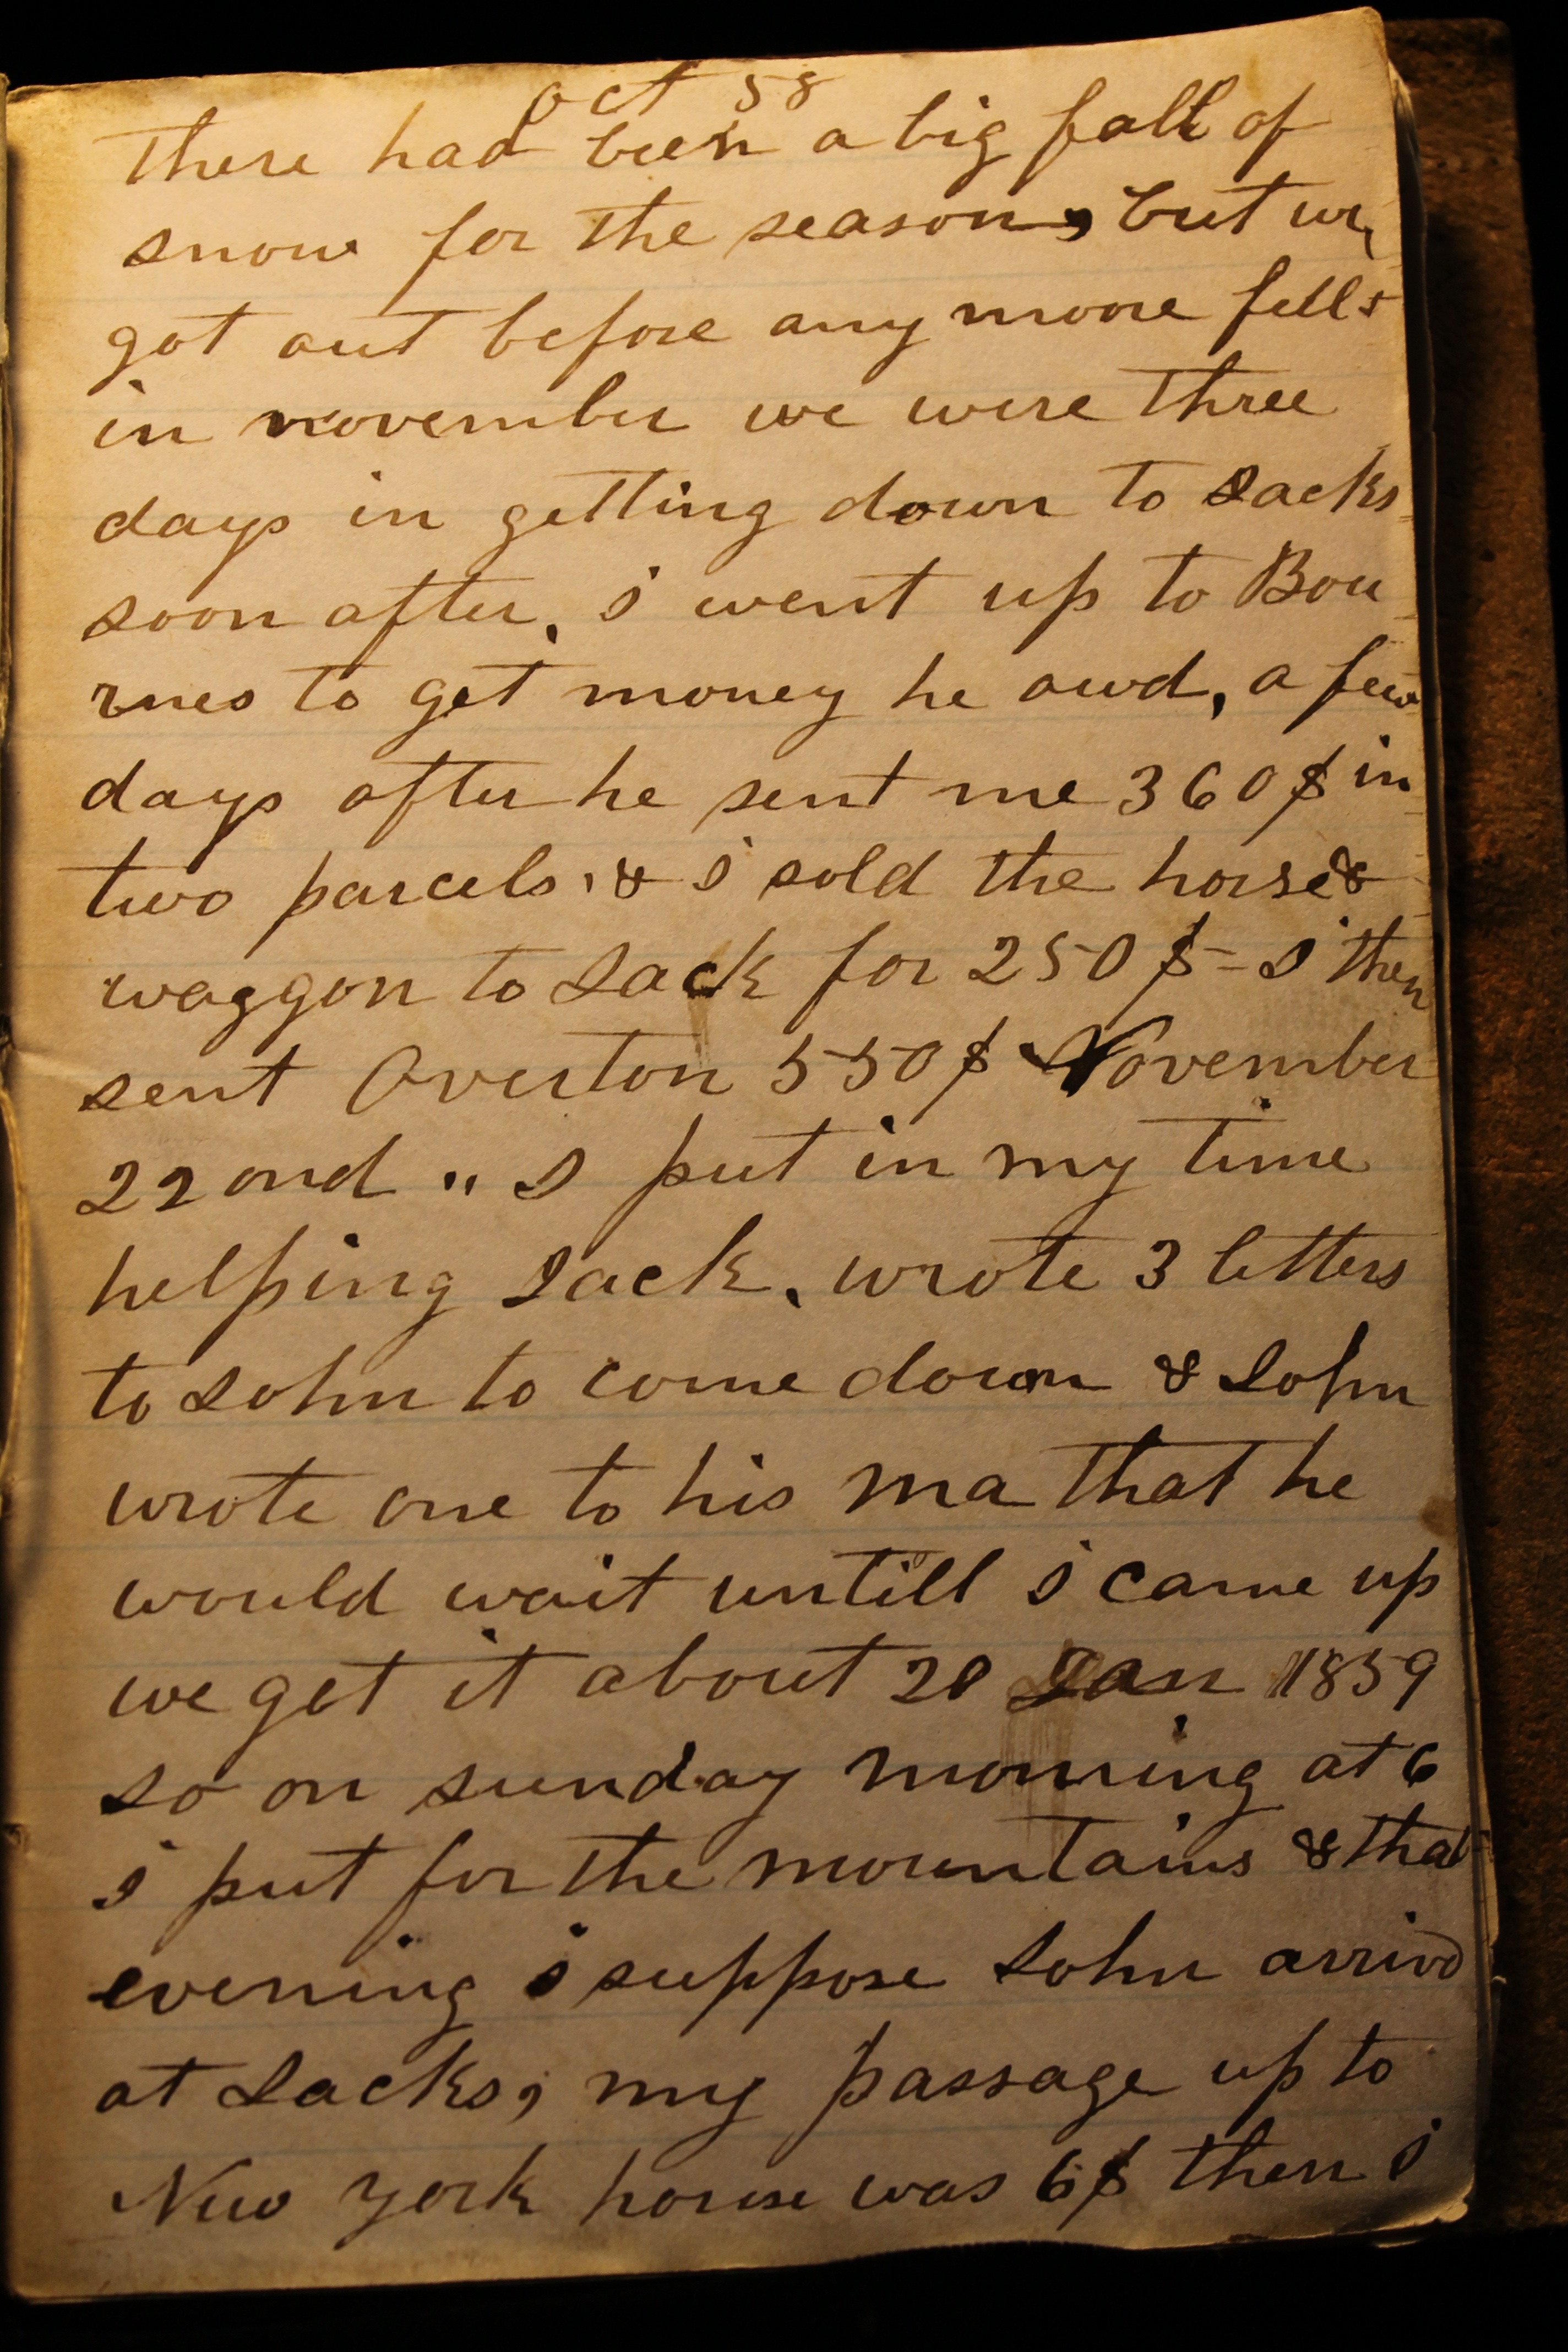 Oct 58
there had been a big fall of
snow for the season, but we
got out before any more fell &
in november we were three
days in getting down to Jacks
soon after, i went up to Bou
rnes to get money he owd, a few
days after he sent me 360$ in
two parcels, & i sold the horse &
waggon to Jack for 250$ - I then
sent Overton 550$ November
22 ond " I put in my time
helping Jack, wrote 3 letters
to John to come down & John
wrote one to his ma that he
would wait untill i came up
we got it about 20 Jan 1859
so on sunday morning at 6
i put for the mountains & that
evening i suppose John arrivd
at Jacks, my passage up to
New York house was 6$ then i